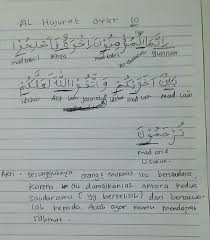 AL Hujurat ayat 10
اِنَّمَا الْمُؤْمِنُوْنَ اِخْوَةٌ فَاَصْلِحُوْا
mad tabi'i gunnah
بَيْنَ اَخَوَيْكُمْ وَاتَّقُوا اللّٰهَ لَعَلَّكُمْ
idzhar mad lain
تُرْحَمُوْنَ
mad arid
Li sukun
Arti : sesungguhnya orang" mukmin itu bersaudara,
karena itu damaikanlah antara kedua
saudaramu (yg berselisih) dan bertakwa-
lah kepada Allah agar kamu mendapat
rahmat.